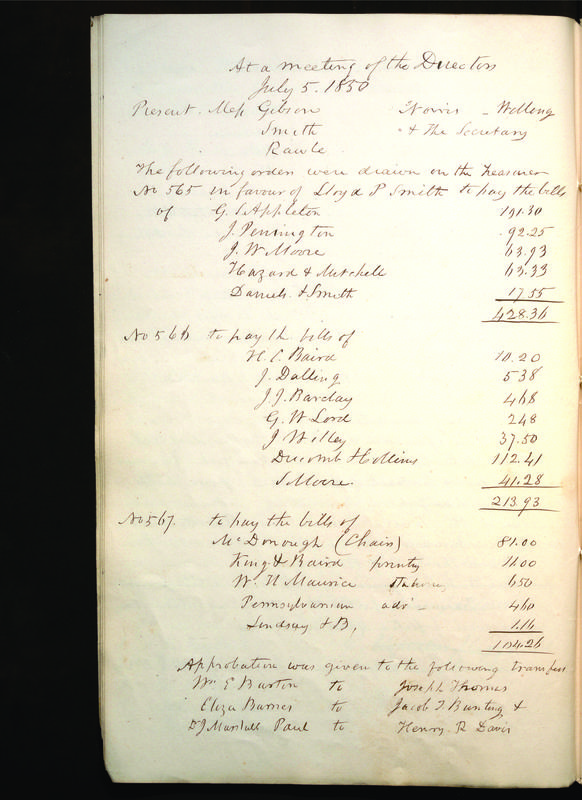 At a meeting of the Directors
July 5. 1850
Present. Mess Gibson Norris - Welling
Smith " & The Secretary
Rawle
The following orders were drawn on the Treasurer
No 565 in favour of Lloyd P Smith to pay the bills
of G. S Appleton 191.30
J. Pennington 92.25
J. W Moore 63.93
Hazard & Mitchell 63.33
Daniels & Smith 17.55
428.36
No 566 to pay th bills of
H. C. Baird 10.20
J. Dalling 5 38
J. J. Barclay 4 68
G. W Lord 2 48
J Willey 37.50
Ducomb & Collins 112.41
S Moore. 41.28
213.93
No 567. to pay the bills of
McDonough (Chairs) 81.00
King & Baird printg 11.00
W. H Maurice 6 50
Pennsylvanian adv - 4 60
Lindsay & B, 1.16
104.26
Approbation was given to the following transfers
Wm E Burton to Joseph Thomas
Eliza Barnes to Jacob T Bunting &
Dr J Marshall Paul to Henry. R Davis